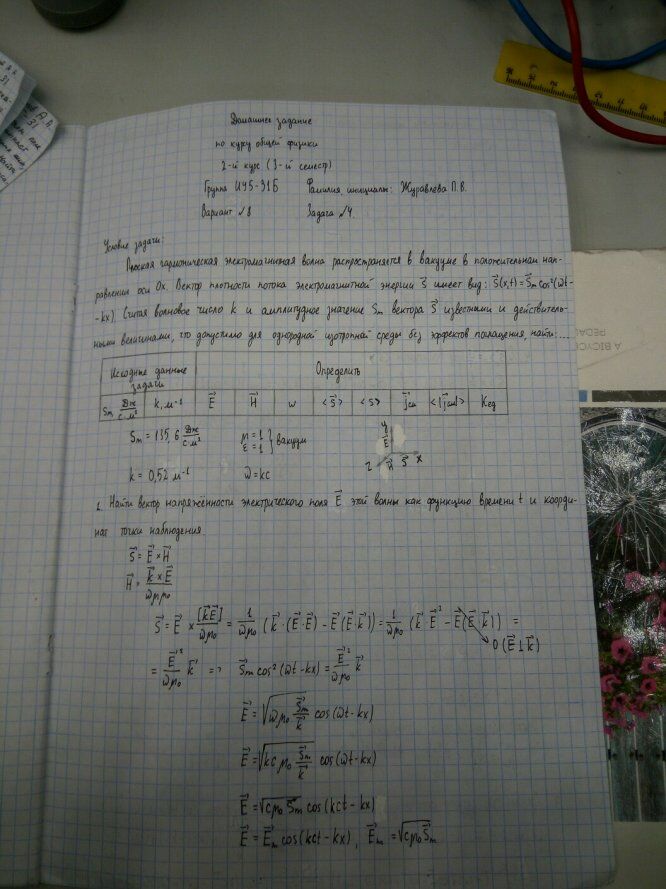 Домашнее задание
по курсу общей физики
2-й курс (3-й семестр)
Группа ИУ5-31Б Фамилия инициалы: Журавлева П.В.
Вариант №8 Задача №4.
Условие задачи:
Плоская гармоническая электромагнитная волна распространяется в вакууме в положительном нап-
равлении оси Ox. Вектор плотности потока электромагнитной энергии S⃗ имеет вид: S⃗(x,t)=S⃗m cos²(ωt-
-kx). Считая волновое число k и амплитудное значение Sm вектора S⃗ известными и действитель-
ными величинами, что допустимо для однородной изотропной среды без эффектов поглощения, найти:...
Исходные данные задачи Определить
Sm Дж/с·м² k, м⁻¹ E⃗ H⃗ ω <S⃗> <S> j⃗см <|j⃗см|> Kед
Sm = 135,6 Дж/с·м² μ=1 ε=1 } вакуум y E⃗
k = 0,52 м⁻¹ ω=kc z H⃗ S⃗ x
1. Найти вектор напряженности электрического поля E⃗ этой волны как функцию времени t и коорди-
нат точки наблюдения
S⃗ = E⃗ × H⃗
H⃗ = k⃗ × E⃗ / ωμμ₀
S⃗ = E⃗ × [k⃗E⃗]/ωμ₀ = 1/ωμ₀ (k⃗·(E⃗·E⃗) - E⃗(E⃗·k⃗)) = 1/ωμ₀ (k⃗ E⃗² - E⃗(E⃗ k⃗)) =
0 (E⃗⊥k⃗)
= E⃗²/ωμ₀ k⃗ => S⃗m cos²(ωt-kx) = E⃗²/ωμ₀ k⃗
E⃗ = √(ωμ₀ S⃗m/k⃗) cos(ωt-kx)
E⃗ = √(kcμ₀ S⃗m/k⃗) cos(ωt-kx)
E⃗ = √(cμ₀ S⃗m) cos(kct-kx)
E⃗ = E⃗m cos(kct-kx), E⃗m = √(cμ₀S⃗m)
A BICYC
PEDAL